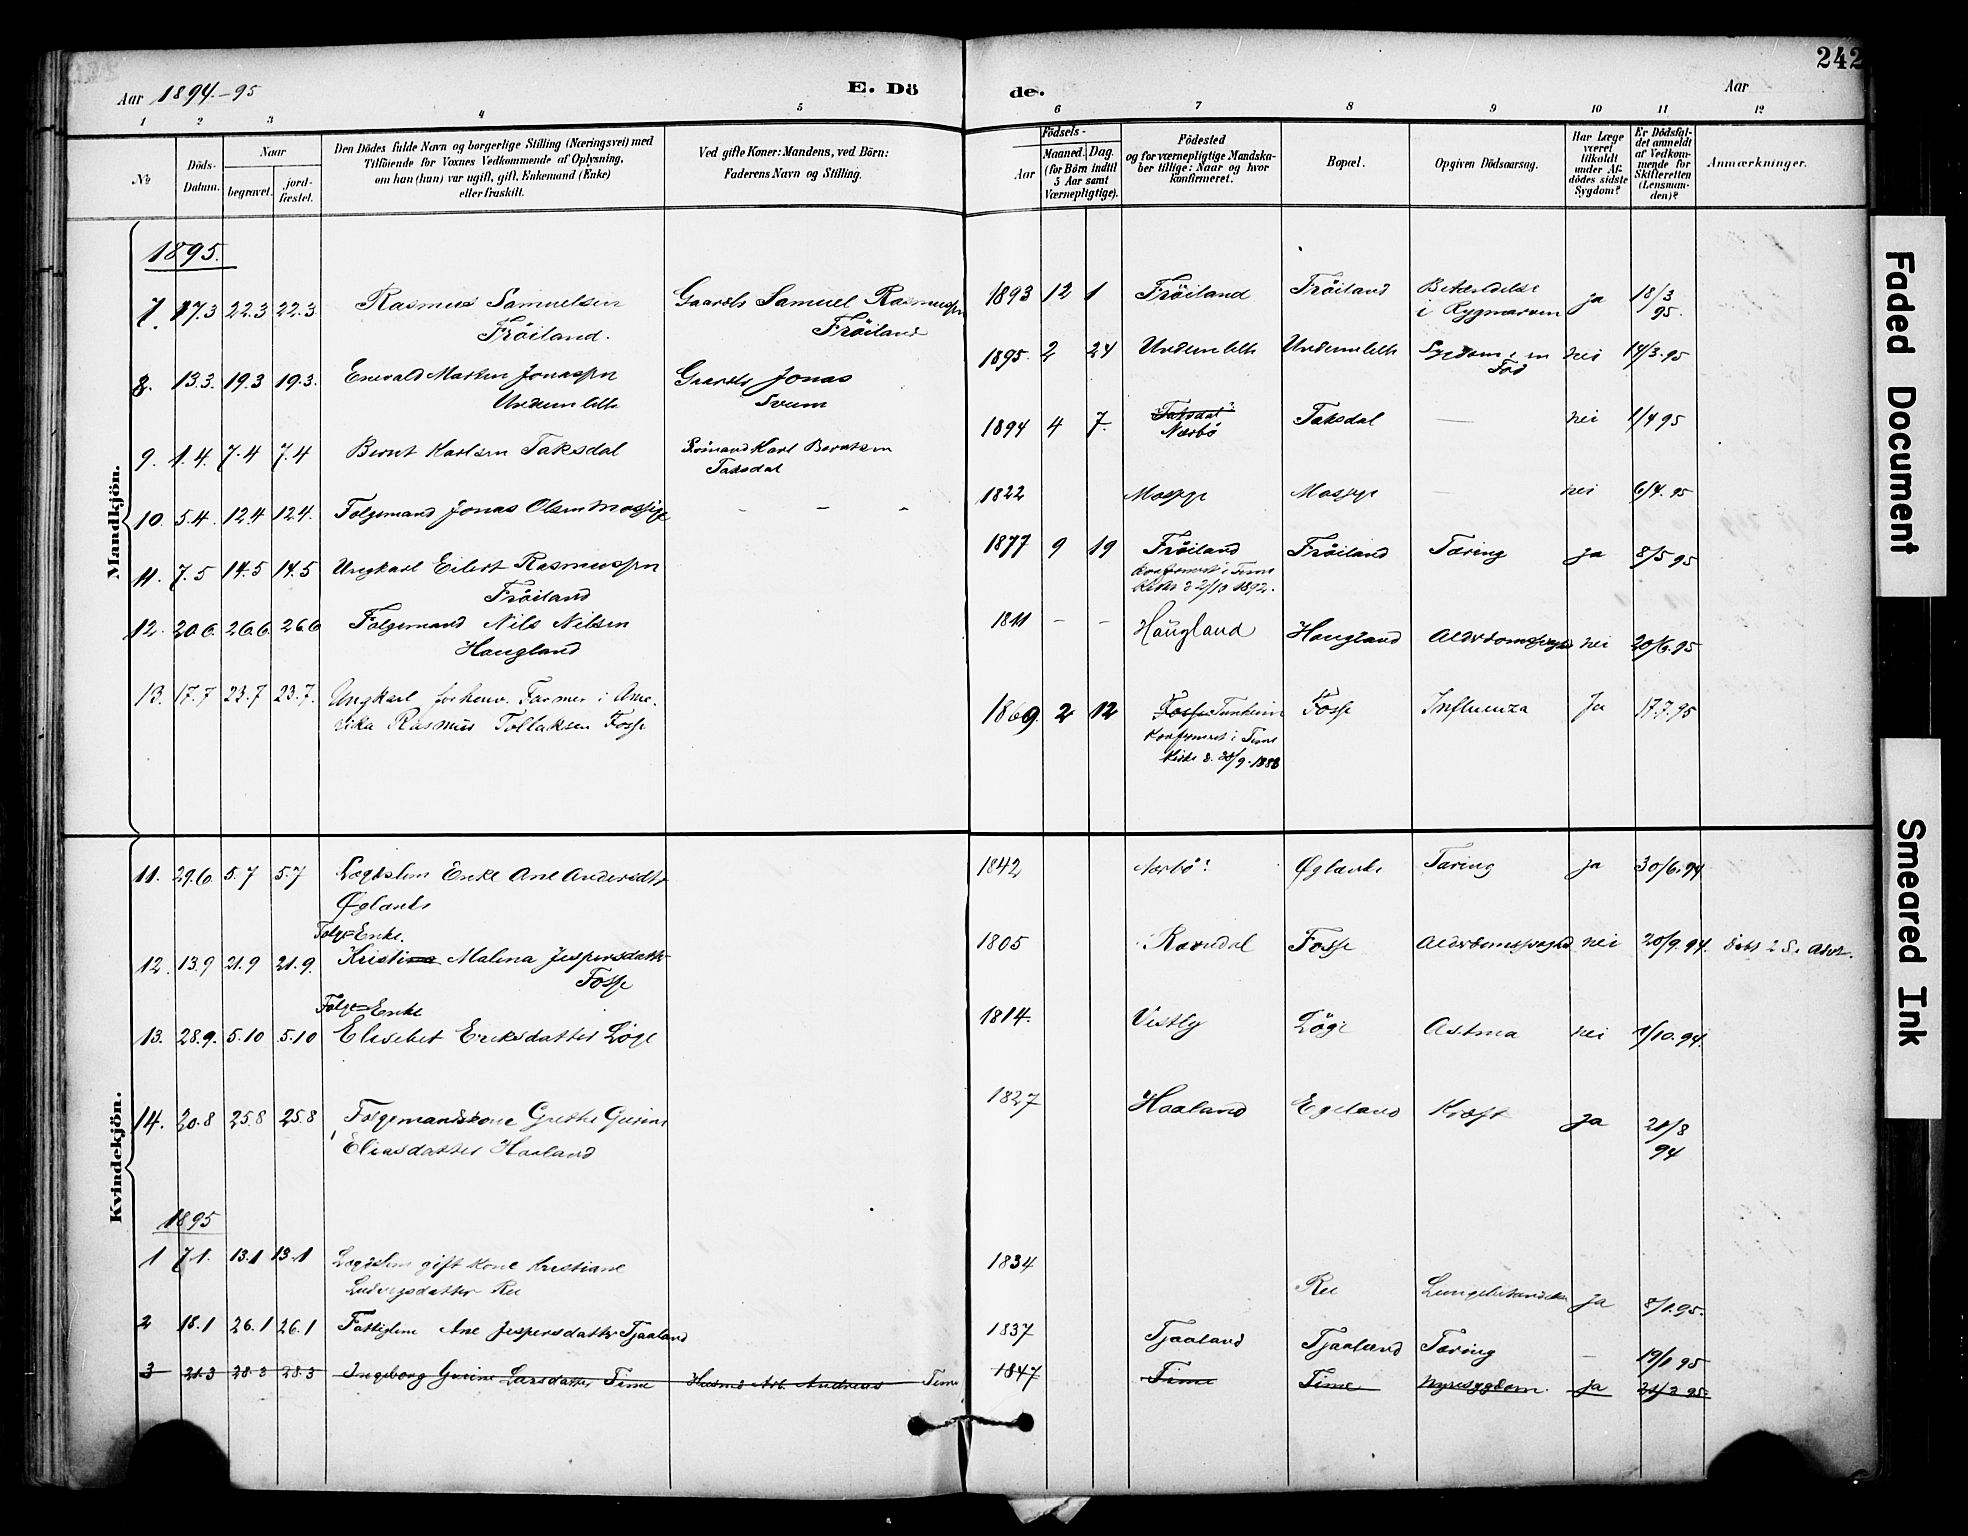 242
Aar 1894-95
E. Dö
de.
Aar
1 2 3 4 5 6 7 8 9 10 11 12
No
Döds-
Datum.
Naar
begravet.
jord-
fæstet.
Den Dödes fulde Navn og borgerlige Stilling (Næringsvei) med
Tilföiende for Voxnes Vedkommende af Oplysning,
om han (hun) var ugift, gift, Enkemand (Enke)
eller fraskilt.
Ved gifte Koner: Mandens, ved Börn:
Faderens Navn og Stilling.
Födsels-
Aar
Maaned. Dag.
(for Børn indtil
5 Aar samt
Værnepligtige).
Födested
og for værnepligtige Mandska-
ber tillige: Naar og hvor
konfirmeret.
Bopæl.
Opgiven Dödsaarsag.
Har Læge
været
tilkaldt
under Af-
dödes sidste
Sygdom?
Er Dödsfal-
det anmeldt
af Vedkom-
mende for
Skifteretten
(Lensman-
den)?
Anmærkninger.
Mandkjön.
1895.
7. 17.3 22.3 22.3 Rasmus Samuelsen Gaardb Samuel Rasmussen 1893 12 1 Fröiland Fröiland Betændelse ja 18/3
Fröiland. Fröiland i Rygmarven 95.
8. 13.3. 19.3 19.3. Enevald Martin Jonassen Gaardb Jonas 1895. 2 24 nei 14/3.95
9. 1.4. 7.4 7.4 Bernt Karlsen Taksdal Karl Berntsen 1894 4 7. Taksdal Taksdal — nei 1/4 95
Taksdal Nærbö
10. 5.4. 12.4 12.4. Folgemand Jonas Olsen Mossige - - - 1822 Mossige Mossige — nei 6/4.95
11. 7.5 14.5 14.5 Ungkarl Eilert Rasmussen 1877 9 19 Fröiland Fröiland Tæring ja 8/5 95
Fröiland konfirmeret i Time
Kirke d 2/10 1892.
12. 20.6. 26.6. 26.6 Folgemand Nils Nilsen 1811 - - Haugland Haugland nei 20/6.95
Haugland
13. 17.7 23.7 23.7. Ungkarl forhenv. Farmer i Ame-
rika Rasmus Tollaksen Fosse 1869. 2 12 Fosse Tunheim Fosse Influenza Ja 17.7.95
Konfirmeret i Time
Kirke d.
Kvindekjön.
11. 29.6 5.7 5.7 Lægdslem Enke Ane Andersdtr 1842 Nærbö? Øglænd Tæring ja 30/6.94
Øglænd
Folge=Enke.
12. 13.9 21.9 21.9. Kristina Malena Jespersdatter 1805 Ravndal Fosse Alderdomssvaghed nei 20/9.94.
Fosse
Folge=Enke
13. 28.9. 5.10 5.10 Elisebet Eriksdatter Löge 1814. Vestly Löge Astma nei 1/10.94.
14. 20.8 25.8 25.8 Folgemandskone Grethe Gurine 1827 Haaland Egeland Kræft Ja 21/8
Eliasdatter Haaland 94
1895
1 7.1. 13.1 13.1 Lægdslem gift Kone Kristiane 1834
Ludvigsdatter Re Re ja 8/1.95.
2 18.1 26.1 26.1 Fattiglem Ane Jespersdatter Tjaaland 1837 Tjaaland Tjaaland Tæring — 19/1 95
3 21.3 28.3 28.3 Ingeborg Gurine Larsdatter Time Husmd Arb. Andreas Time 1847 Time Time Nyresygdom. ja 21/3 95.
Faded Document
Smeared Ink